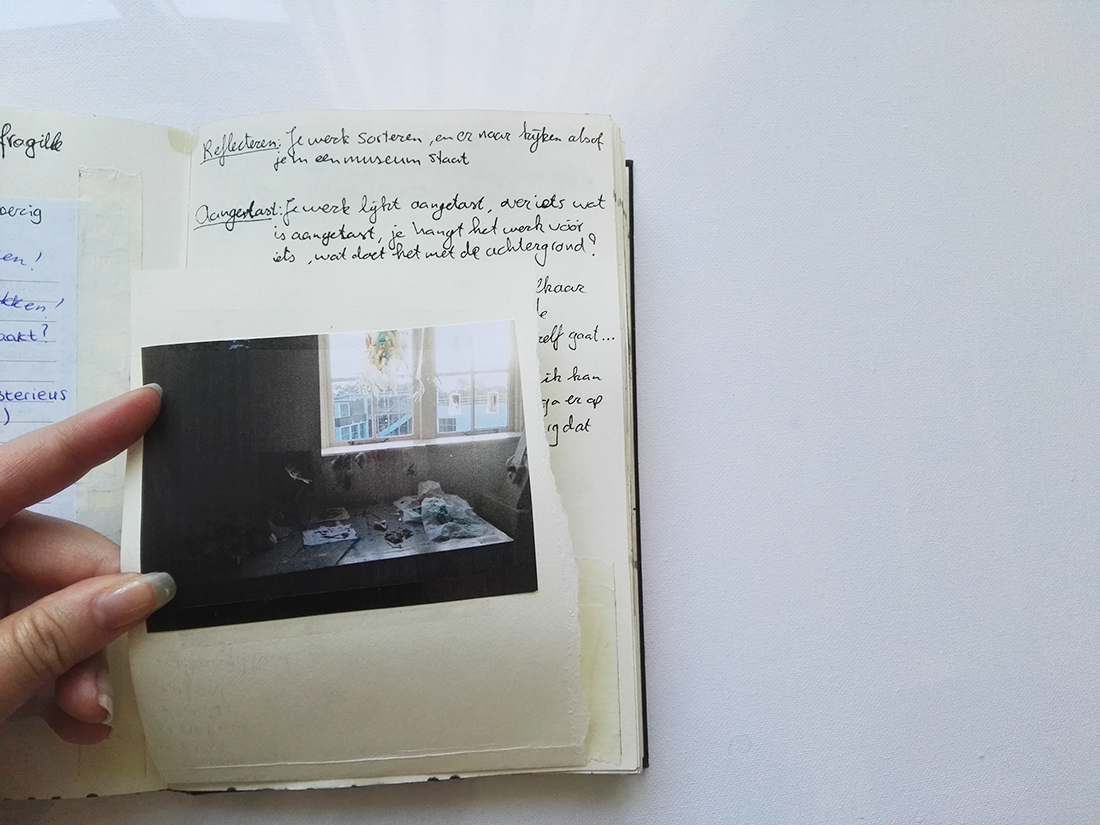 en!
kken!
aakt?
sterieus
)
Reflecteren: Je werk sorteren, en er naar kijken alsof
je in een museum staat
Aangetast: Je werk lijkt aangetast, over iets wat
is aangetast, je hangt het werk vóór
iets, wat doet het met de achtergrond?
lkaar
zelf gaat...
ik kan
ga er op
rg dat